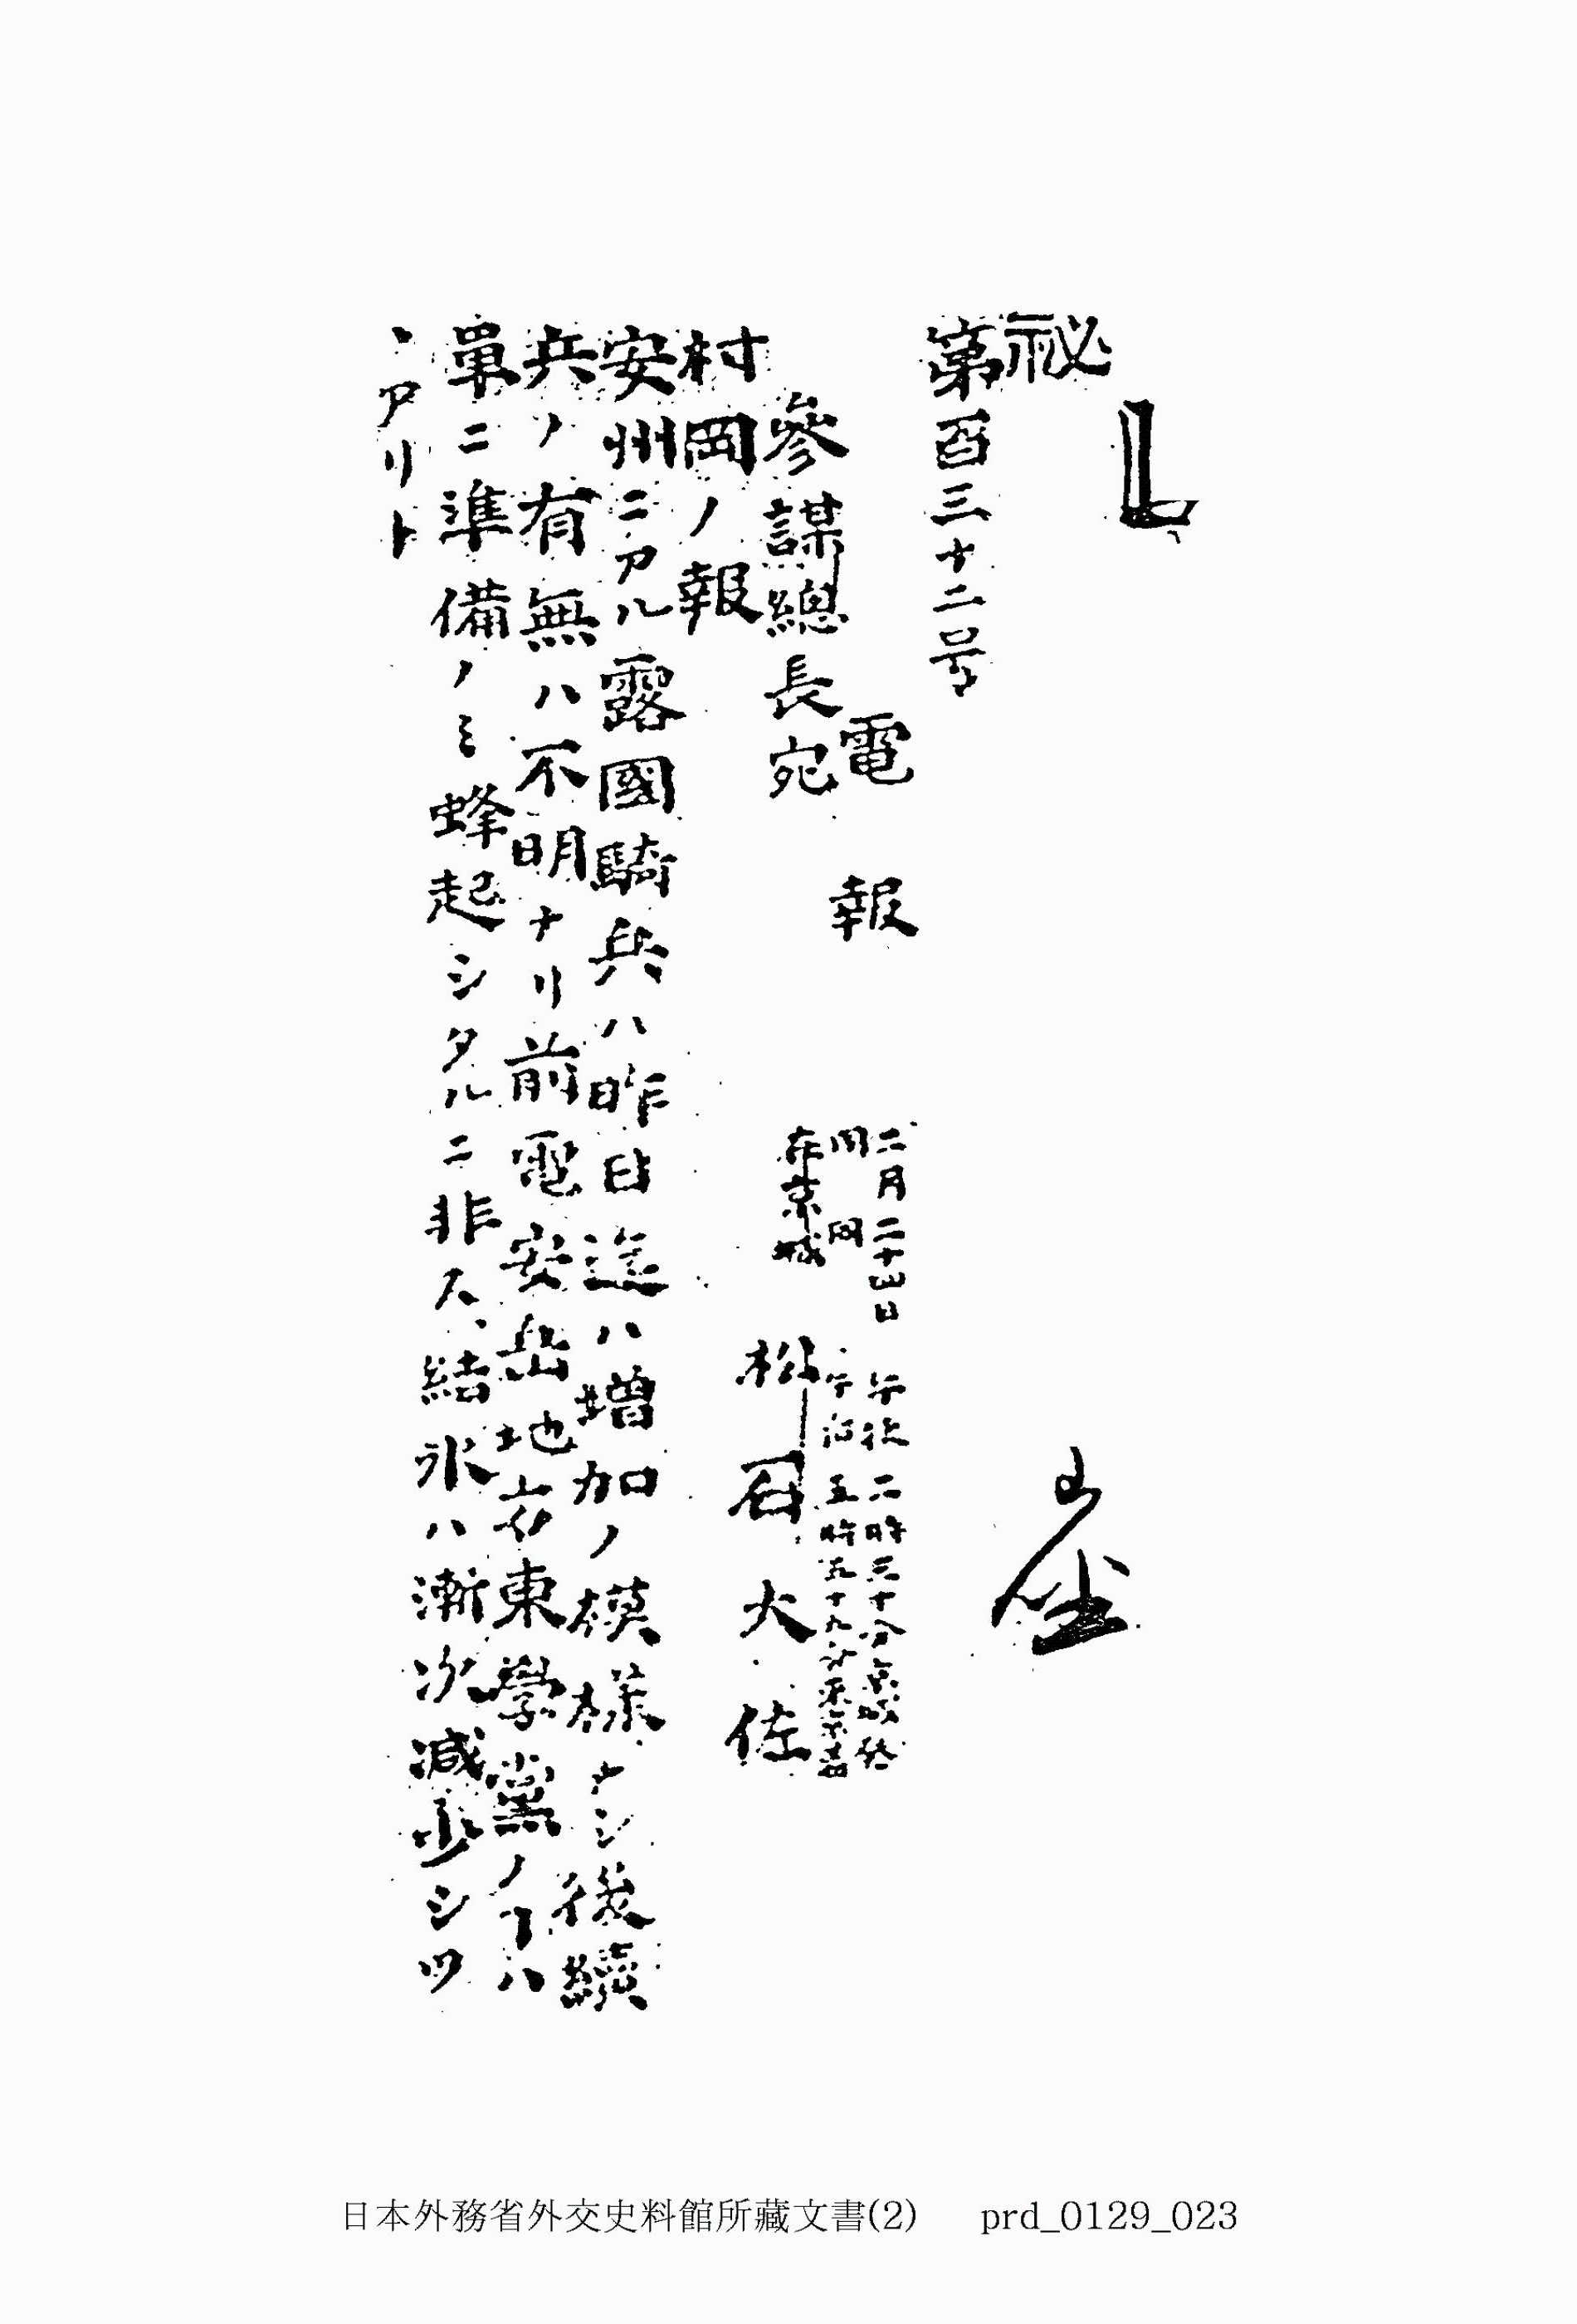 祕
第百三十二号
電報
二月二十四日午後二時三十分京城発
同同午后五時五十九分東京着
在京城 松石大佐
參謀總長宛
村岡ノ報
安州ニアル露國騎兵ハ昨日迄ハ增加ノ模樣ナシ後續
兵ノ有無ハ不明ナリ前電安岳地方東學黨ノヿハ
單ニ準備ノミ蜂起シタルニ非ス、結氷ハ漸次減少シツ
ヽアリト
日本外務省外交史料館所藏文書(2) prd_0129_023